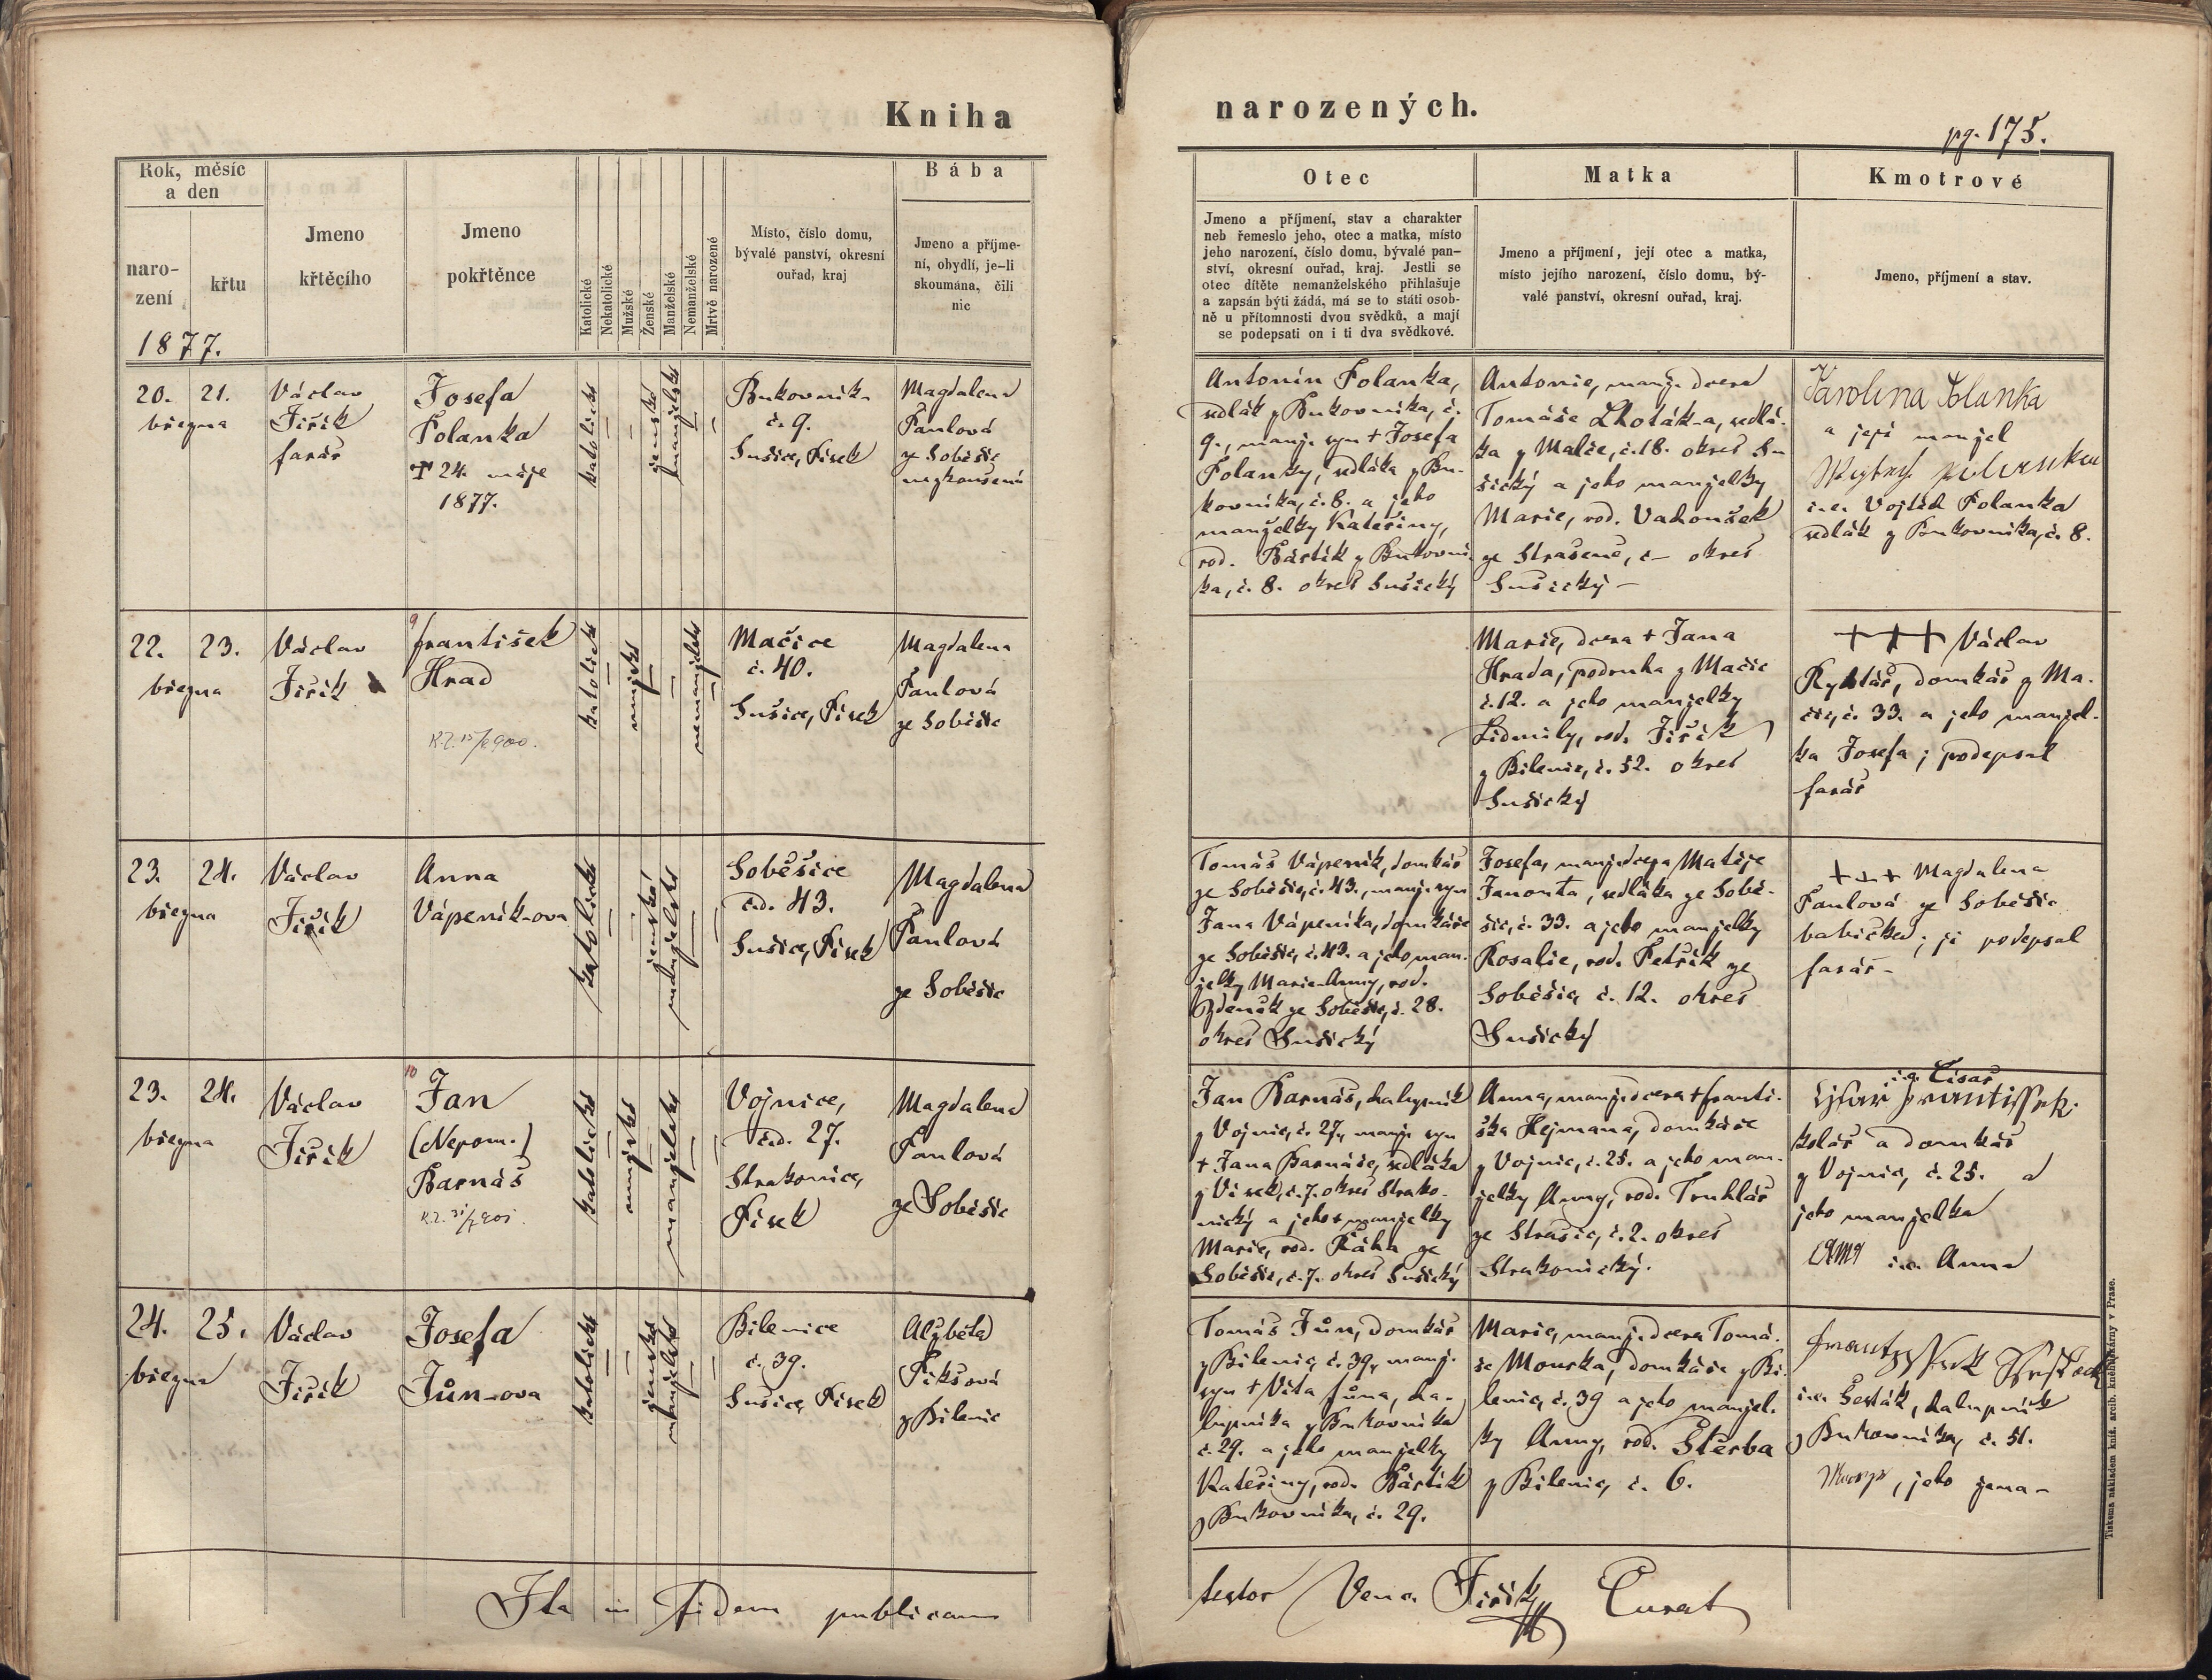 Kniha
narozených.
pg. 175.
Rok, měsíc
a den
naro-
zení
křtu
1877.
Jmeno
křtěcího
Jmeno
pokřtěnce
Katolické
Nekatolické
Mužské
Ženské
Manželské
Nemanželské
Mrtvě narozené
Místo, číslo domu,
bývalé panství, okresní
ouřad, kraj
Bába
Jmeno a příjme-
ní, obydlí, je-li
skoumána, čili
nic
Otec
Jmeno a příjmení, stav a charakter
neb řemeslo jeho, otec a matka, místo
jeho narození, číslo domu, bývalé pan-
ství, okresní ouřad, kraj. Jestli se
otec dítěte nemanželského přihlašuje
a zapsán býti žádá, má se to státi osob-
ně u přítomnosti dvou svědků, a mají
se podepsati on i ti dva svědkové.
Matka
Jmeno a příjmení, její otec a matka,
místo jejího narození, číslo domu, bý-
valé panství, okresní ouřad, kraj.
Kmotrové
Jmeno, příjmení a stav.
20. 21.
března
Václav
Jiřík
farář
Josefa
Polanka
† 24. máje
1877.
katolické
ženské
manželské
Bukovník
č. 9.
Sušice, Písek
Magdalena
Paulová
ze Soběšic
nezkoušená
Antonín Polanka,
sedlák z Bukovníka, č.
9., manž. syn † Josefa
Polanky, sedláka z Bu-
kovníka, č. 8. a jeho
manželky Kateřiny,
rod. Bártík z Bukovní-
ka, č. 8. okres Sušický
Antonie, manž. dcera
Tomáše Lhoták-a, sedlá-
ka z Malče, č. 18. okres Su-
šický a jeho manželky
Marie, rod. Vahoušek
ze Strašene, č – okres
Sušický –
Karolina Polanka
a její manžel
i.e. Vojtěch Polanka
sedlák z Bukovníka, č. 8.
22. 23.
března
Václav
Jiřík
9
František
Hrad
katolické
mužské
nemanželské
Mačice
č. 40.
Sušice, Písek
Magdalena
Paulová
ze Soběšic
Marie, dcera † Jana
Hrada, podruha z Mačic
č. 12. a jeho manželky
Lidmily, rod. Jiřík
z Bilenic, č. 32. okres
Sušický
+++ Václav
Rychtář, domkář z Ma-
čic, č. 33. a jeho manžel-
ka Josefa; podepsal
farář
23. 24.
března
Václav
Jiřík
Anna
Vápeník-ova
katolické
ženské
manželské
Soběšice
č.d. 43.
Sušice, Písek
Magdalena
Paulová
ze Soběšic
Tomáš Vápeník, domkář
ze Soběšic, č. 43., manž. syn
Jana Vápeníka, domkáře
ze Soběšic, č. 43. a jeho man-
želky Marie-Anny, rod.
Zdeněk ze Soběšic, č. 28.
okres Sušický
Josefa, manž. dcera Matěje
Janouta, sedláka ze Sobě-
šic, č. 33. a jeho manželky
Rosalie, rod. Petřík ze
Soběšic, č. 12. okres
Sušický
+++ Magdalena
Paulová ze Soběšic
babička; ji podepsal
farář –
23. 24.
března
Václav
Jiřík
10
Jan
(Nepom.)
Barnáš
katolické
mužské
manželské
Vojnice,
č.d. 27.
Strakonice,
Písek
Magdalena
Paulová
ze Soběšic
Jan Barnáš, chalupník
z Vojnic, č. 27., manž. syn
† Jana Barnáše, sedláka
z Vísek, č. 7. okres Strako-
nický a jeho † manželky
Marie, rod. Káha ze
Soběšic, č. 7. okres Sušický
Anna, manž. dcera † Franti-
ška Hejmana, domkáře
z Vojnic, č. 25. a jeho man-
želky Anny, rod. Truhlář
ze Strašic, č. 2. okres
Strakonický.
i.e. Císař
kolář a domkář
z Vojnic, č. 25. a
jeho manželka
i.e. Anna
24. 25.
března
Václav
Jiřík
Josefa
Jůn-ova
katolické
ženské
manželské
Bilenice
č. 39.
Sušice, Písek
Alžběta
Pikšová
z Bilenic
Tomáš Jůn, domkář
z Bilenic, č. 39., manž.
syn † Víta Jůna, cha-
lupníka z Bukovníka
č. 29. a jeho manželky
Kateřiny, rod. Bártík
z Bukovníka, č. 29.
Marie, manž. dcera Tomá-
še Mouska, domkáře z Bi-
lenic, č. 39 a jeho manžel-
ky Anny, rod. Štěrba
z Bilenic, č. 6.
i.e. Šesták, chalupník
z Bukovníka, č. 51.
, jeho žena –
Ita in fidem publicam
testor Venc. Jiřík, Curat
Tiskem a nákladem kníž. arcib. kněhtiskárny v Praze.